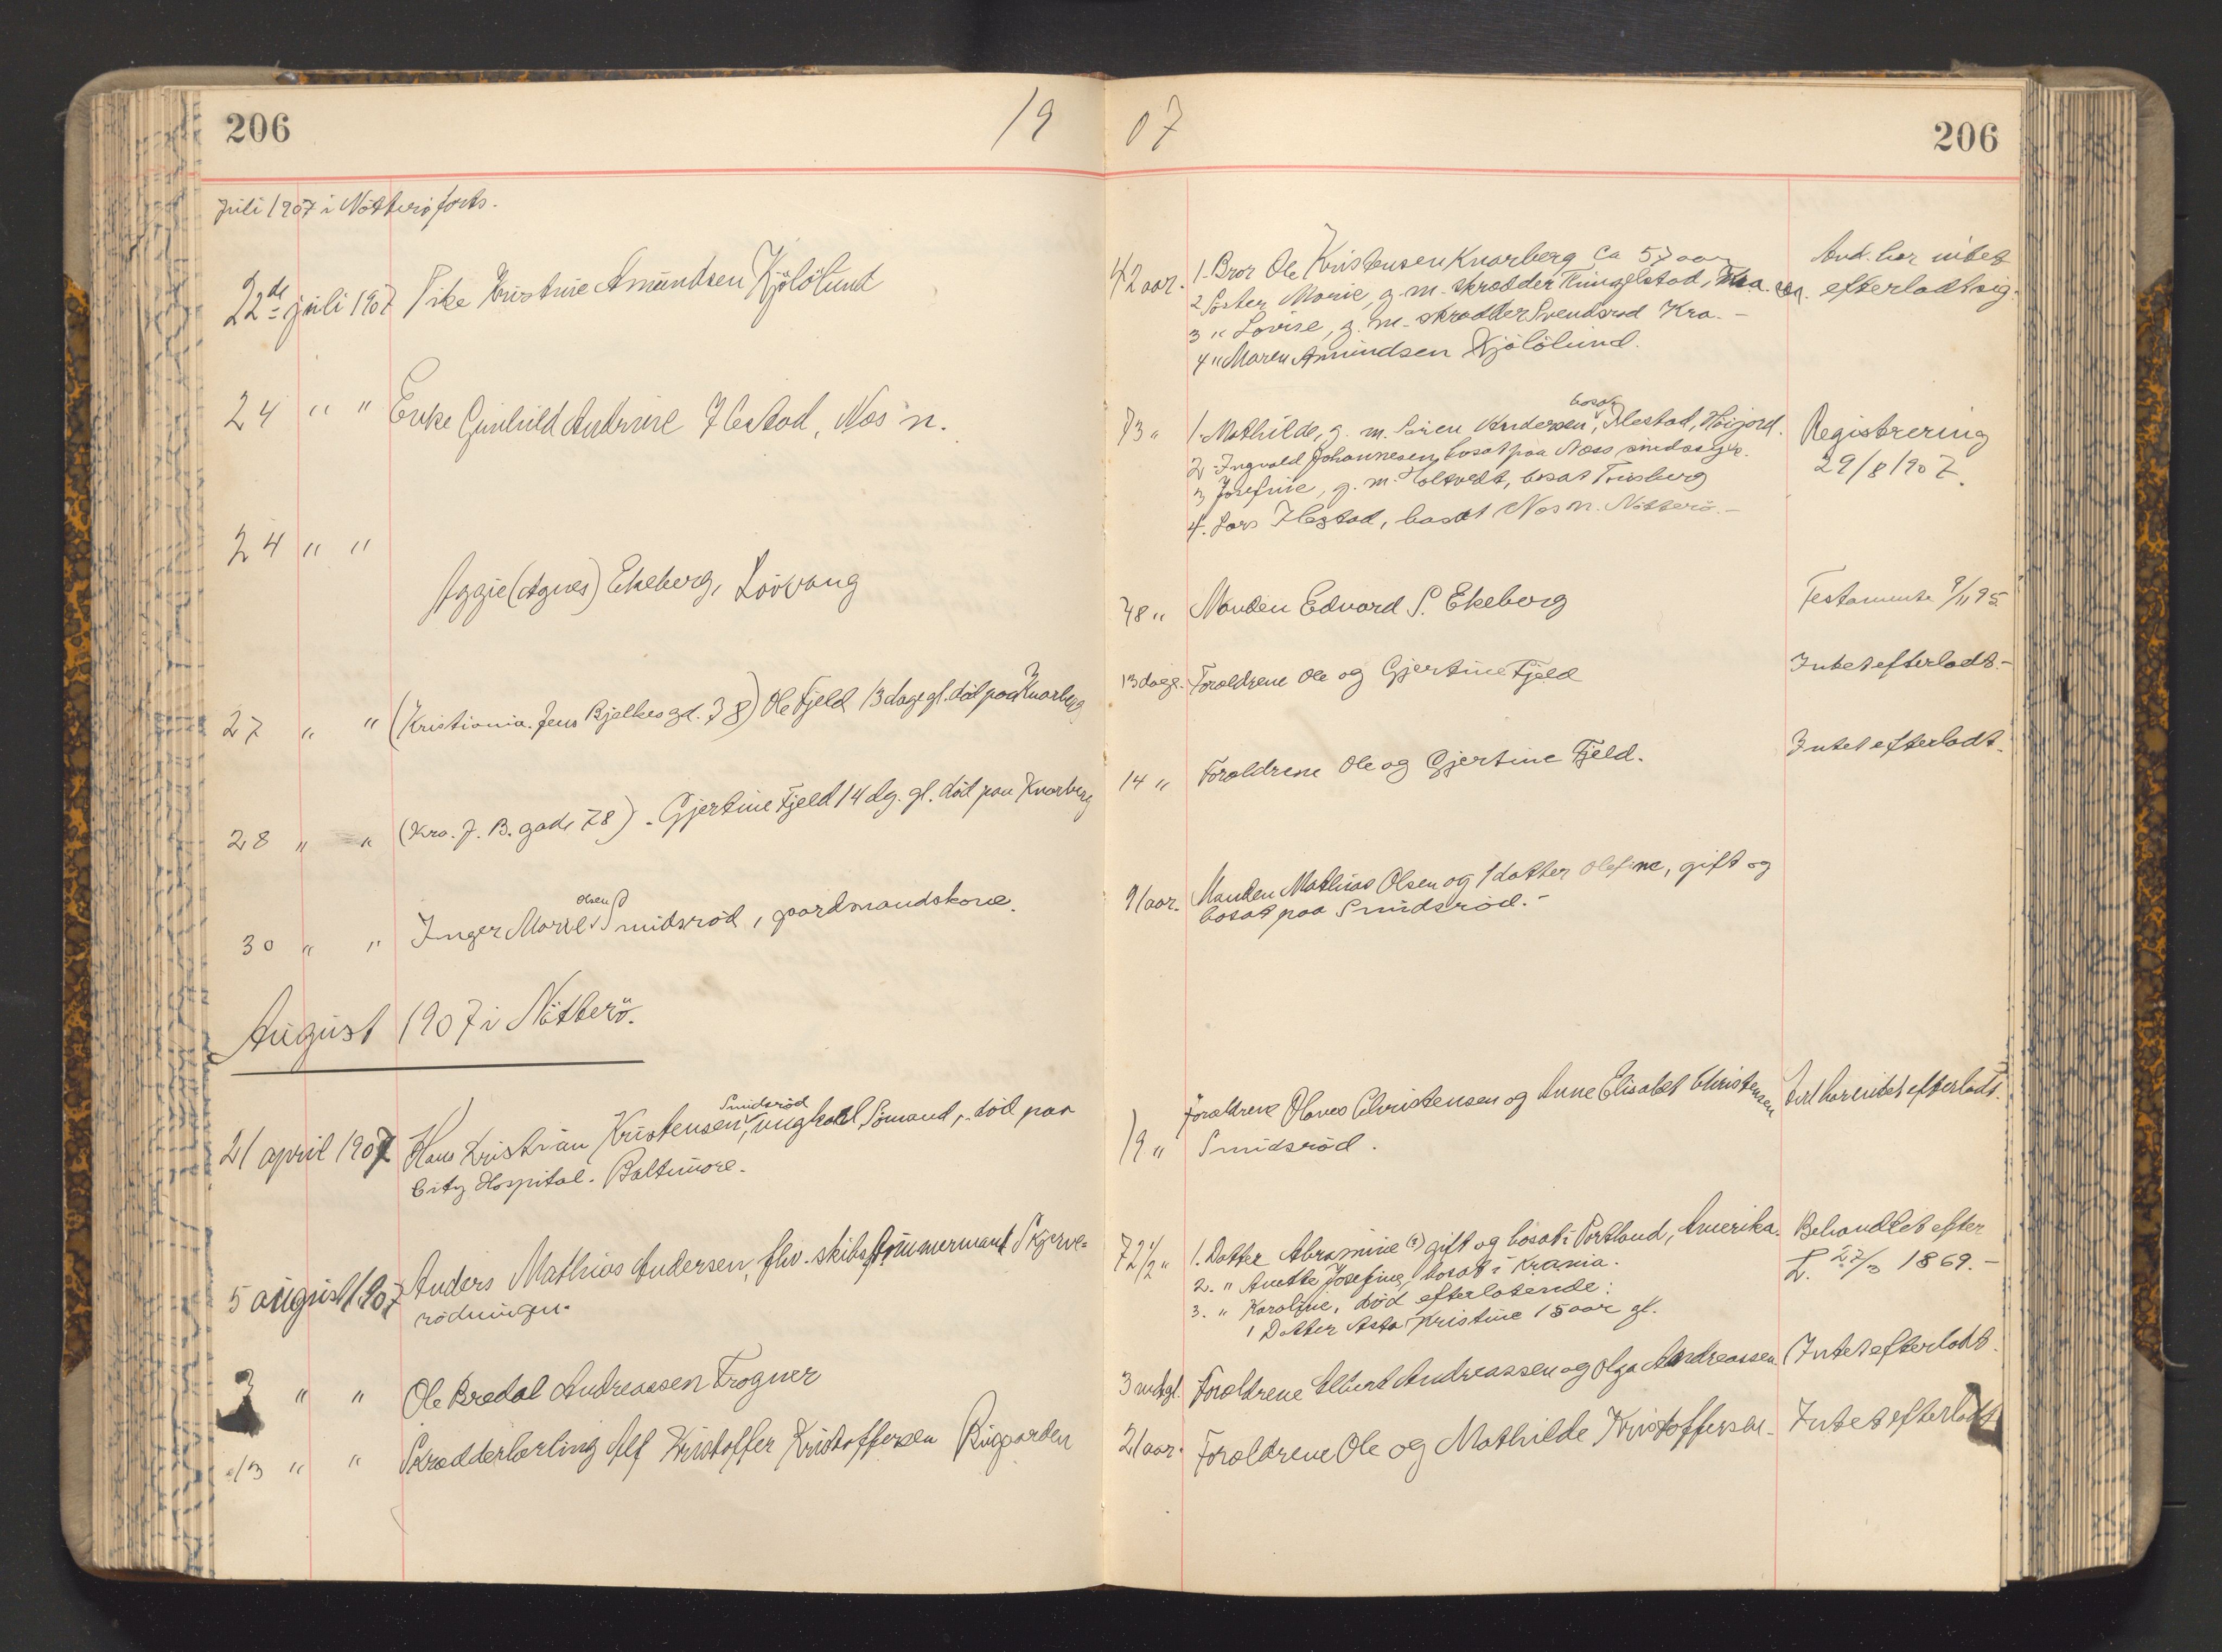 206
19
07
206
Juli 1907 i Nötterö forts.
22de juli 1907 Pike Kristine Amundsen Kjölölund
42 aar. 1. Bror Ole Kristensen Knarberg ca 57 aar
2 Söster Marie, g. m. skrædder Tingelstad, Kra.
3 " Lovise, g. m. skrædder Svendsrød Kra. -
4 " Maren Amundsen Kjölölund.
And. har intet
efterladt sig.
24 " " Enke Gunhild Andrine Ilestad, Nes n.
73 " 1. Mathilde, g. m. Sören Andersen, bosat Ilestad, Höijord.
2. Ingvald Johannesen, bosat paa Næss
3 Josefine, g. m. Holtvedt, bosat Tönsberg
4. Lars Ilestad, bosat Nes n. Nötterö. -
Registrering
29/8 1907.
24 " "
Aggie (Agnes) Ekeberg, Lövvang
48 " Manden Edvard S. Ekeberg
Testamente 9/11 95
27 " " (Kristiania. Jens Bjelkes gd. 78) Ole Fjeld 13 dage gl. död paa Knarberg
13 dage. Forældrene Ole og Gjertine Fjeld
Intet efterladt. -
28 " " (Kra. J. B. gade 78). Gjertine Fjeld 14 dg. gl. död paa Knarberg
14 " Forældrene Ole og Gjertine Fjeld.
Intet efterladt.
30 " " Inger Marie Olsen Smidsröd, gaardmandskone.
91 aar. Manden Mathias Olsen og 1 datter Olefine, gift og
bosat paa Smidsröd. -
August 1907 i Nötterö.
21 april 1907 Hans Kristian Kristensen Smidsröd, ungkarl Sömand, död paa
City Hospital. Baltimore.
19 " Forældrene Olaves Christensen og Anne Elisabet Christensen
Smidsröd.
har intet efterladt.
5 august 1907 Anders Mathias Andersen, fhv. skibstömmermand Skjerve-
rödningen.
72 1/2 " 1. Datter Abramine (?) gift og bosat i Portland, Amerika.
2. " Anette Josefine, bosat i Krania.
3. " Karoline, död efterlatende:
1 Datter Asta Kristine 15 aar gl.
Behandlet efter
L. 27/3 1869. -
3 " " Ole Bredal Andreassen Trogner
3 mdgl. Forældrene Albert Andreassen og Olga Andreassen
Intet efterladt.
13 " " Skrædderlærling Alf Kristoffer Kristoffersen Buegaarden
21 aar. Forældrene Ole og Mathilde Kristoffersen -
Intet efterladt